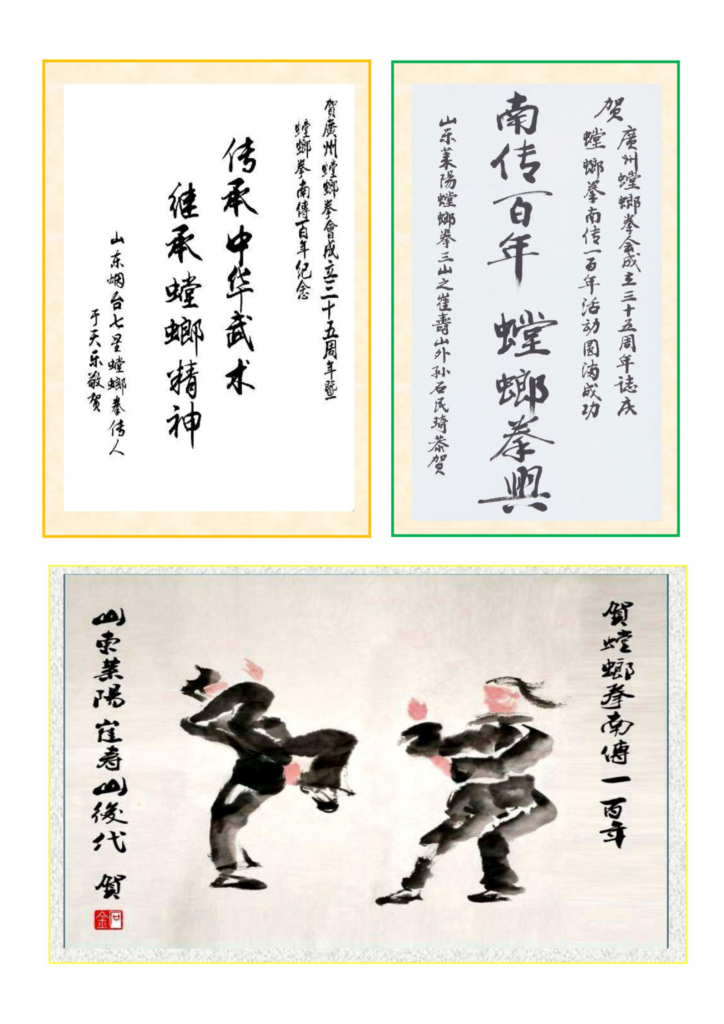 賀廣州螳螂拳會成立三十五周年暨
螳螂拳南傳百年纪念
传承中华武术
继承螳螂精神
山东烟台七星螳螂拳传人
于天乐敬賀
贺
廣州螳螂拳会成立三十五周年誌庆
螳螂拳南传一百年活动圆满成功
南传百年 螳螂拳興
山东莱陽螳螂拳三山之崔壽山外孙石民琦恭贺
賀螳螂拳南傳一百年
山東莱陽崔寿山後代 賀